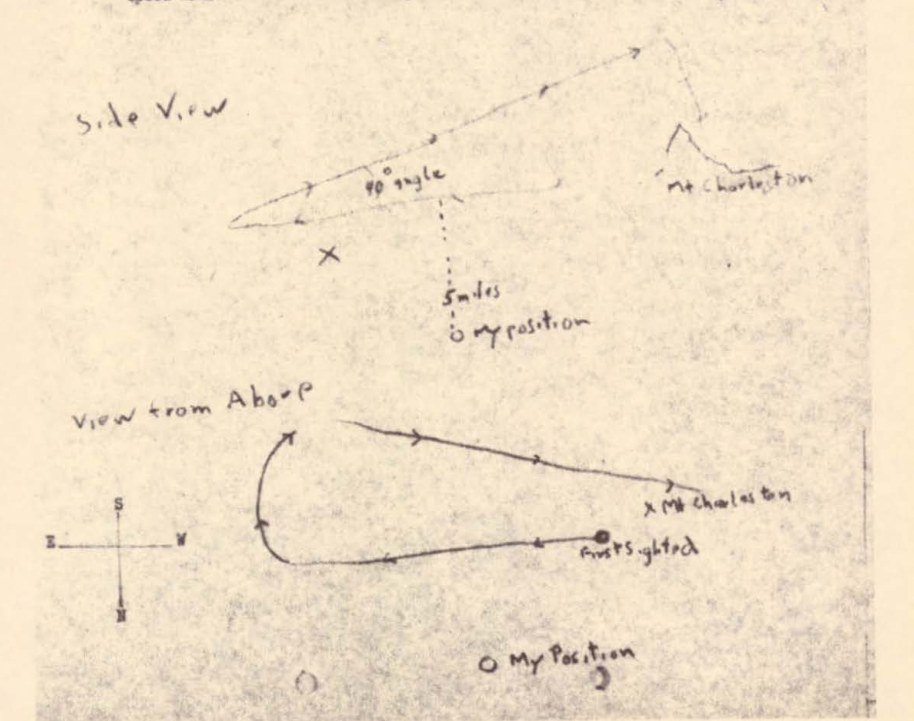 Side View
40° angle
Mt Charleston
X
5 miles
My position
View from Above
S
E W
N
x Mt Charleston
First Sighted
My Position